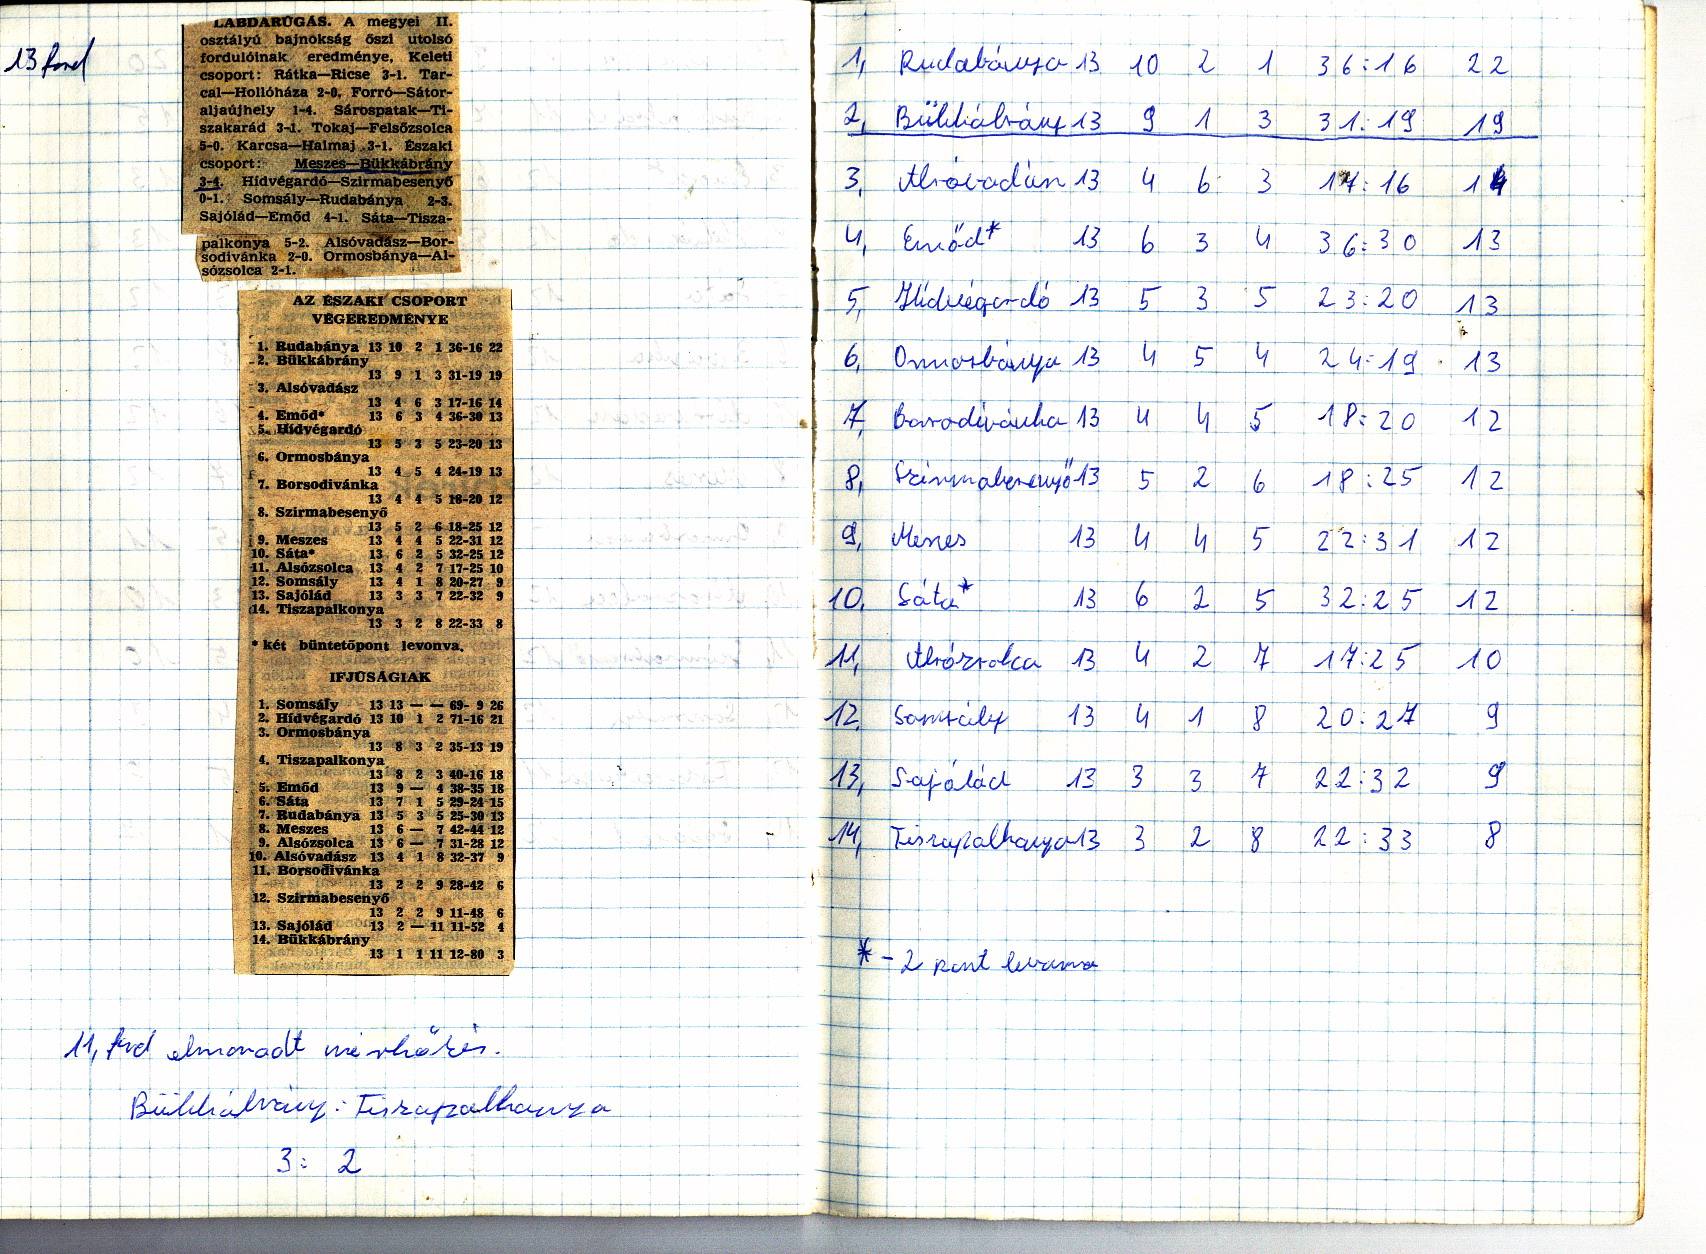 13 ford
LABDARÚGÁS. A megyei II.
osztályú bajnokság őszi utolsó
fordulóinak eredménye. Keleti
csoport: Rátka—Ricse 3-1. Tar-
cal—Hollóháza 2-0. Forró—Sátor-
aljaújhely 1-4. Sárospatak—Ti-
szakarád 3-1. Tokaj—Felsőzsolca
5-0. Karcsa—Halmaj 3-1. Északi
csoport: Meszes—Bükkábrány
3-4. Hídvégardó—Szirmabesenyő
0-1. Somsály—Rudabánya 2-3.
Sajólád—Emőd 4-1. Sáta—Tisza-
palkonya 5-2. Alsóvadász—Bor-
sodivánka 2-0. Ormosbánya—Al-
sózsolca 2-1.
AZ ÉSZAKI CSOPORT
VÉGEREDMÉNYE
1. Rudabánya 13 10 2 1 36-16 22
2. Bükkábrány
13 9 1 3 31-19 19
3. Alsóvadász
13 4 6 3 17-16 14
4. Emőd* 13 6 3 4 36-30 13
5. Hídvégardó
13 5 3 5 23-20 13
6. Ormosbánya
13 4 5 4 24-19 13
7. Borsodivánka
13 4 4 5 18-20 12
8. Szirmabesenyő
13 5 2 6 18-25 12
9. Meszes 13 4 4 5 22-31 12
10. Sáta* 13 6 2 5 32-25 12
11. Alsózsolca 13 4 2 7 17-25 10
12. Somsály 13 4 1 8 20-27 9
13. Sajólád 13 3 3 7 22-32 9
14. Tiszapalkonya
13 3 2 8 22-33 8
* két büntetőpont levonva.
IFJÚSÁGIAK
1. Somsály 13 13 — — 69- 9 26
2. Hídvégardó 13 10 1 2 71-16 21
3. Ormosbánya
13 8 3 2 35-13 19
4. Tiszapalkonya
13 8 2 3 40-16 18
5. Emőd 13 9 — 4 38-35 18
6. Sáta 13 7 1 5 29-24 15
7. Rudabánya 13 5 3 5 25-30 13
8. Meszes 13 6 — 7 42-44 12
9. Alsózsolca 13 6 — 7 31-28 12
10. Alsóvadász 13 4 1 8 32-37 9
11. Borsodivánka
13 2 2 9 28-42 6
12. Szirmabesenyő
13 2 2 9 11-48 6
13. Sajólád 13 2 — 11 11-52 4
14. Bükkábrány
13 1 1 11 12-80 3
11, ford elmaradt mérkőzés.
Bükkábrány : Tiszapalkonya
3 : 2
1, Rudabánya 13 10 2 1 36:16 22
2, Bükkábrány 13 9 1 3 31:19 19
3, Alsóvadász 13 4 6 3 17:16 14
4, Emőd* 13 6 3 4 36:30 13
5, Hídvégardó 13 5 3 5 23:20 13
6, Ormosbánya 13 4 5 4 24:19 13
7, Borsodivánka 13 4 4 5 18:20 12
8, Szirmabesenyő 13 5 2 6 18:25 12
9, Meszes 13 4 4 5 22:31 12
10, Sáta* 13 6 2 5 32:25 12
11, Alsózsolca 13 4 2 7 17:25 10
12, Somsály 13 4 1 8 20:27 9
13, Sajólád 13 3 3 7 22:32 9
14, Tiszapalkonya 13 3 2 8 22:33 8
* - 2 pont levonva